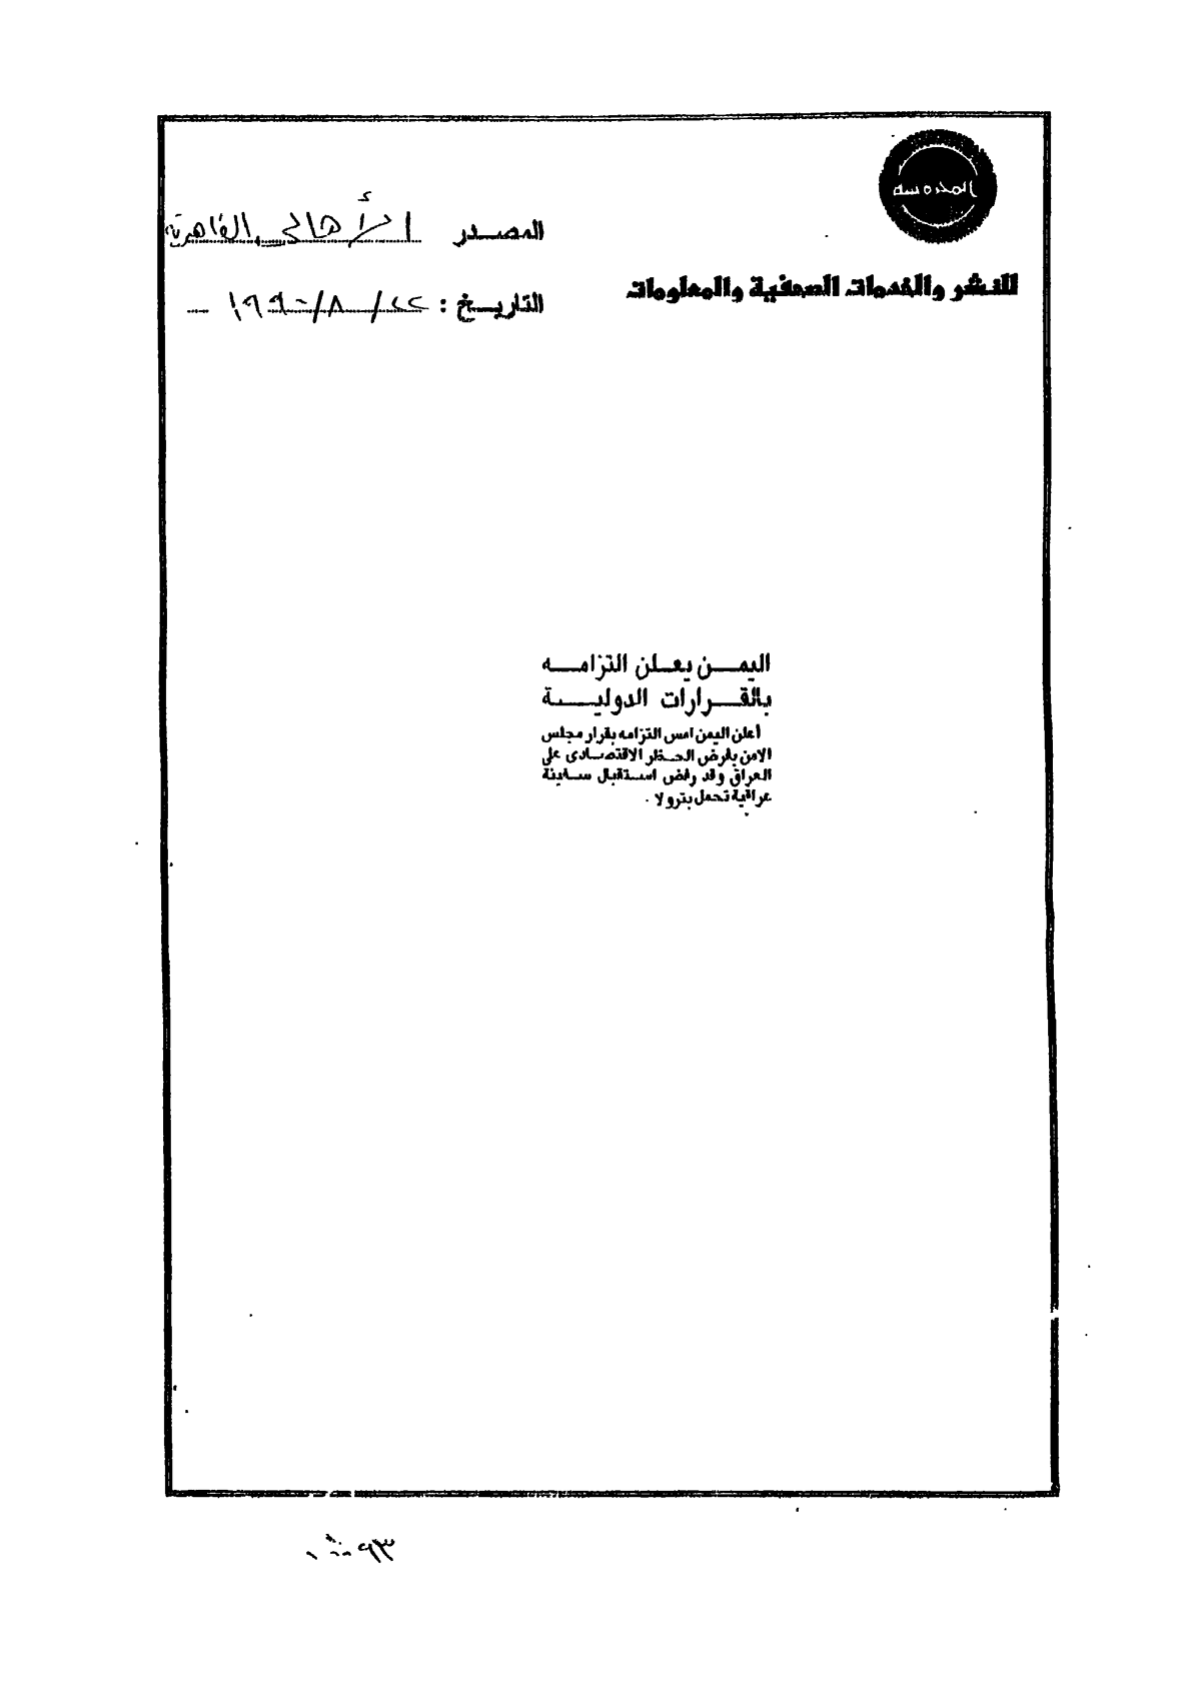 المحروسة
للنشر والخدمات الصحفية والمعلومات
المصدر الأهالي القاهرية
التاريخ : ٢٢/٨/١٩٩٠
اليمن يعلن التزامه
بالقرارات الدولية
أعلن اليمن امس التزامه بقرار مجلس
الامن بفرض الحظر الاقتصادى على
العراق وقد رفض استقبال سفينة
عراقية تحمل بترولا .